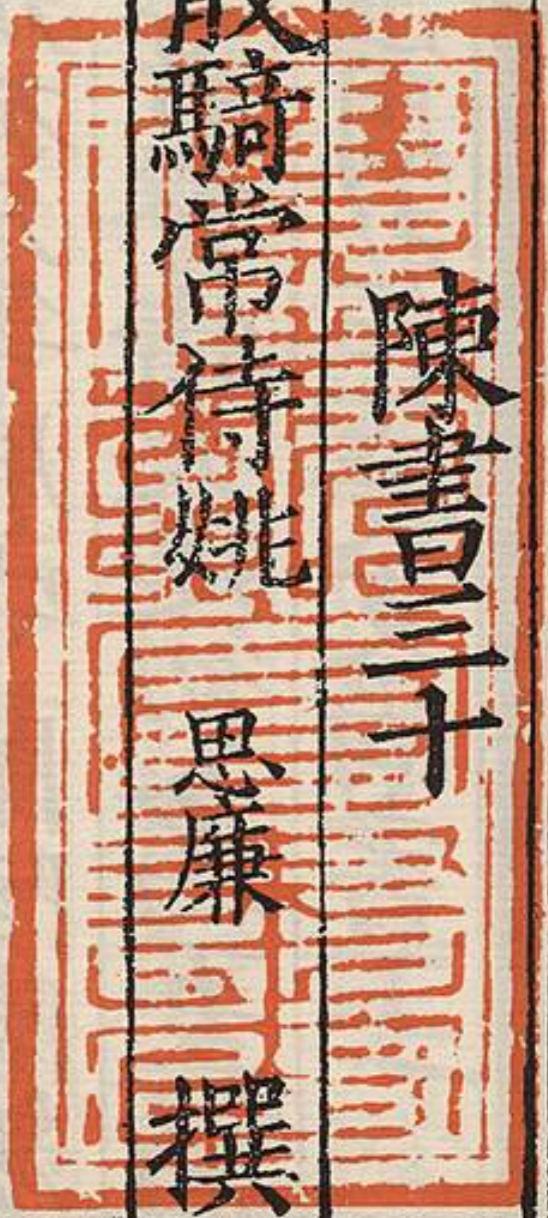 陳書三十
散騎常侍姚 思廉 撰